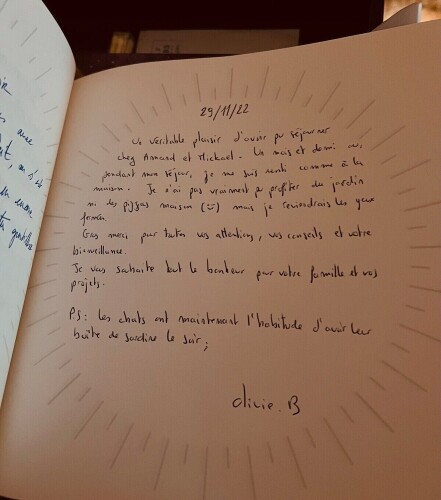 29/11/22
Un véritable plaisir d'avoir pu séjourner
chez Armand et Mickael. Un mois et demi où,
pendant mon séjour, je me suis senti comme à la
maison. Je n'ai pas vraiment pu profiter du jardin
ni des pizzas maison (☺) mais je reviendrais les yeux
fermés.
Gros merci pour toutes vos attentions, vos conseils et votre
bienveillance.
Je vous souhaite tout le bonheur pour votre famille et vos
projets.
PS: Les chats ont maintenant l'habitude d'avoir leur
boîte de sardine le soir;